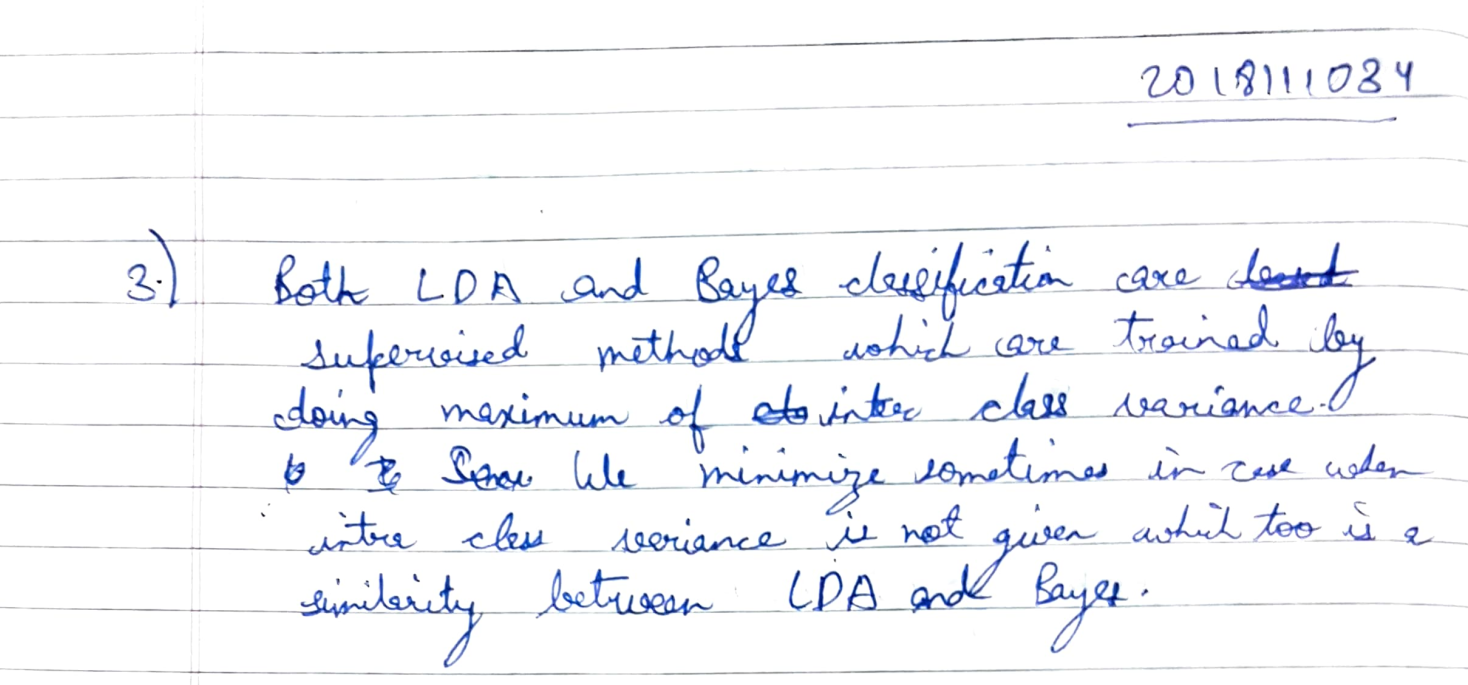 2018111034
3.) Both LDA and Bayes classification are
supervised methods which are trained by
doing maximum of inter class variance.
We minimize sometimes in case when
intra class variance is not given which too is a
similarity between LDA and Bayes.